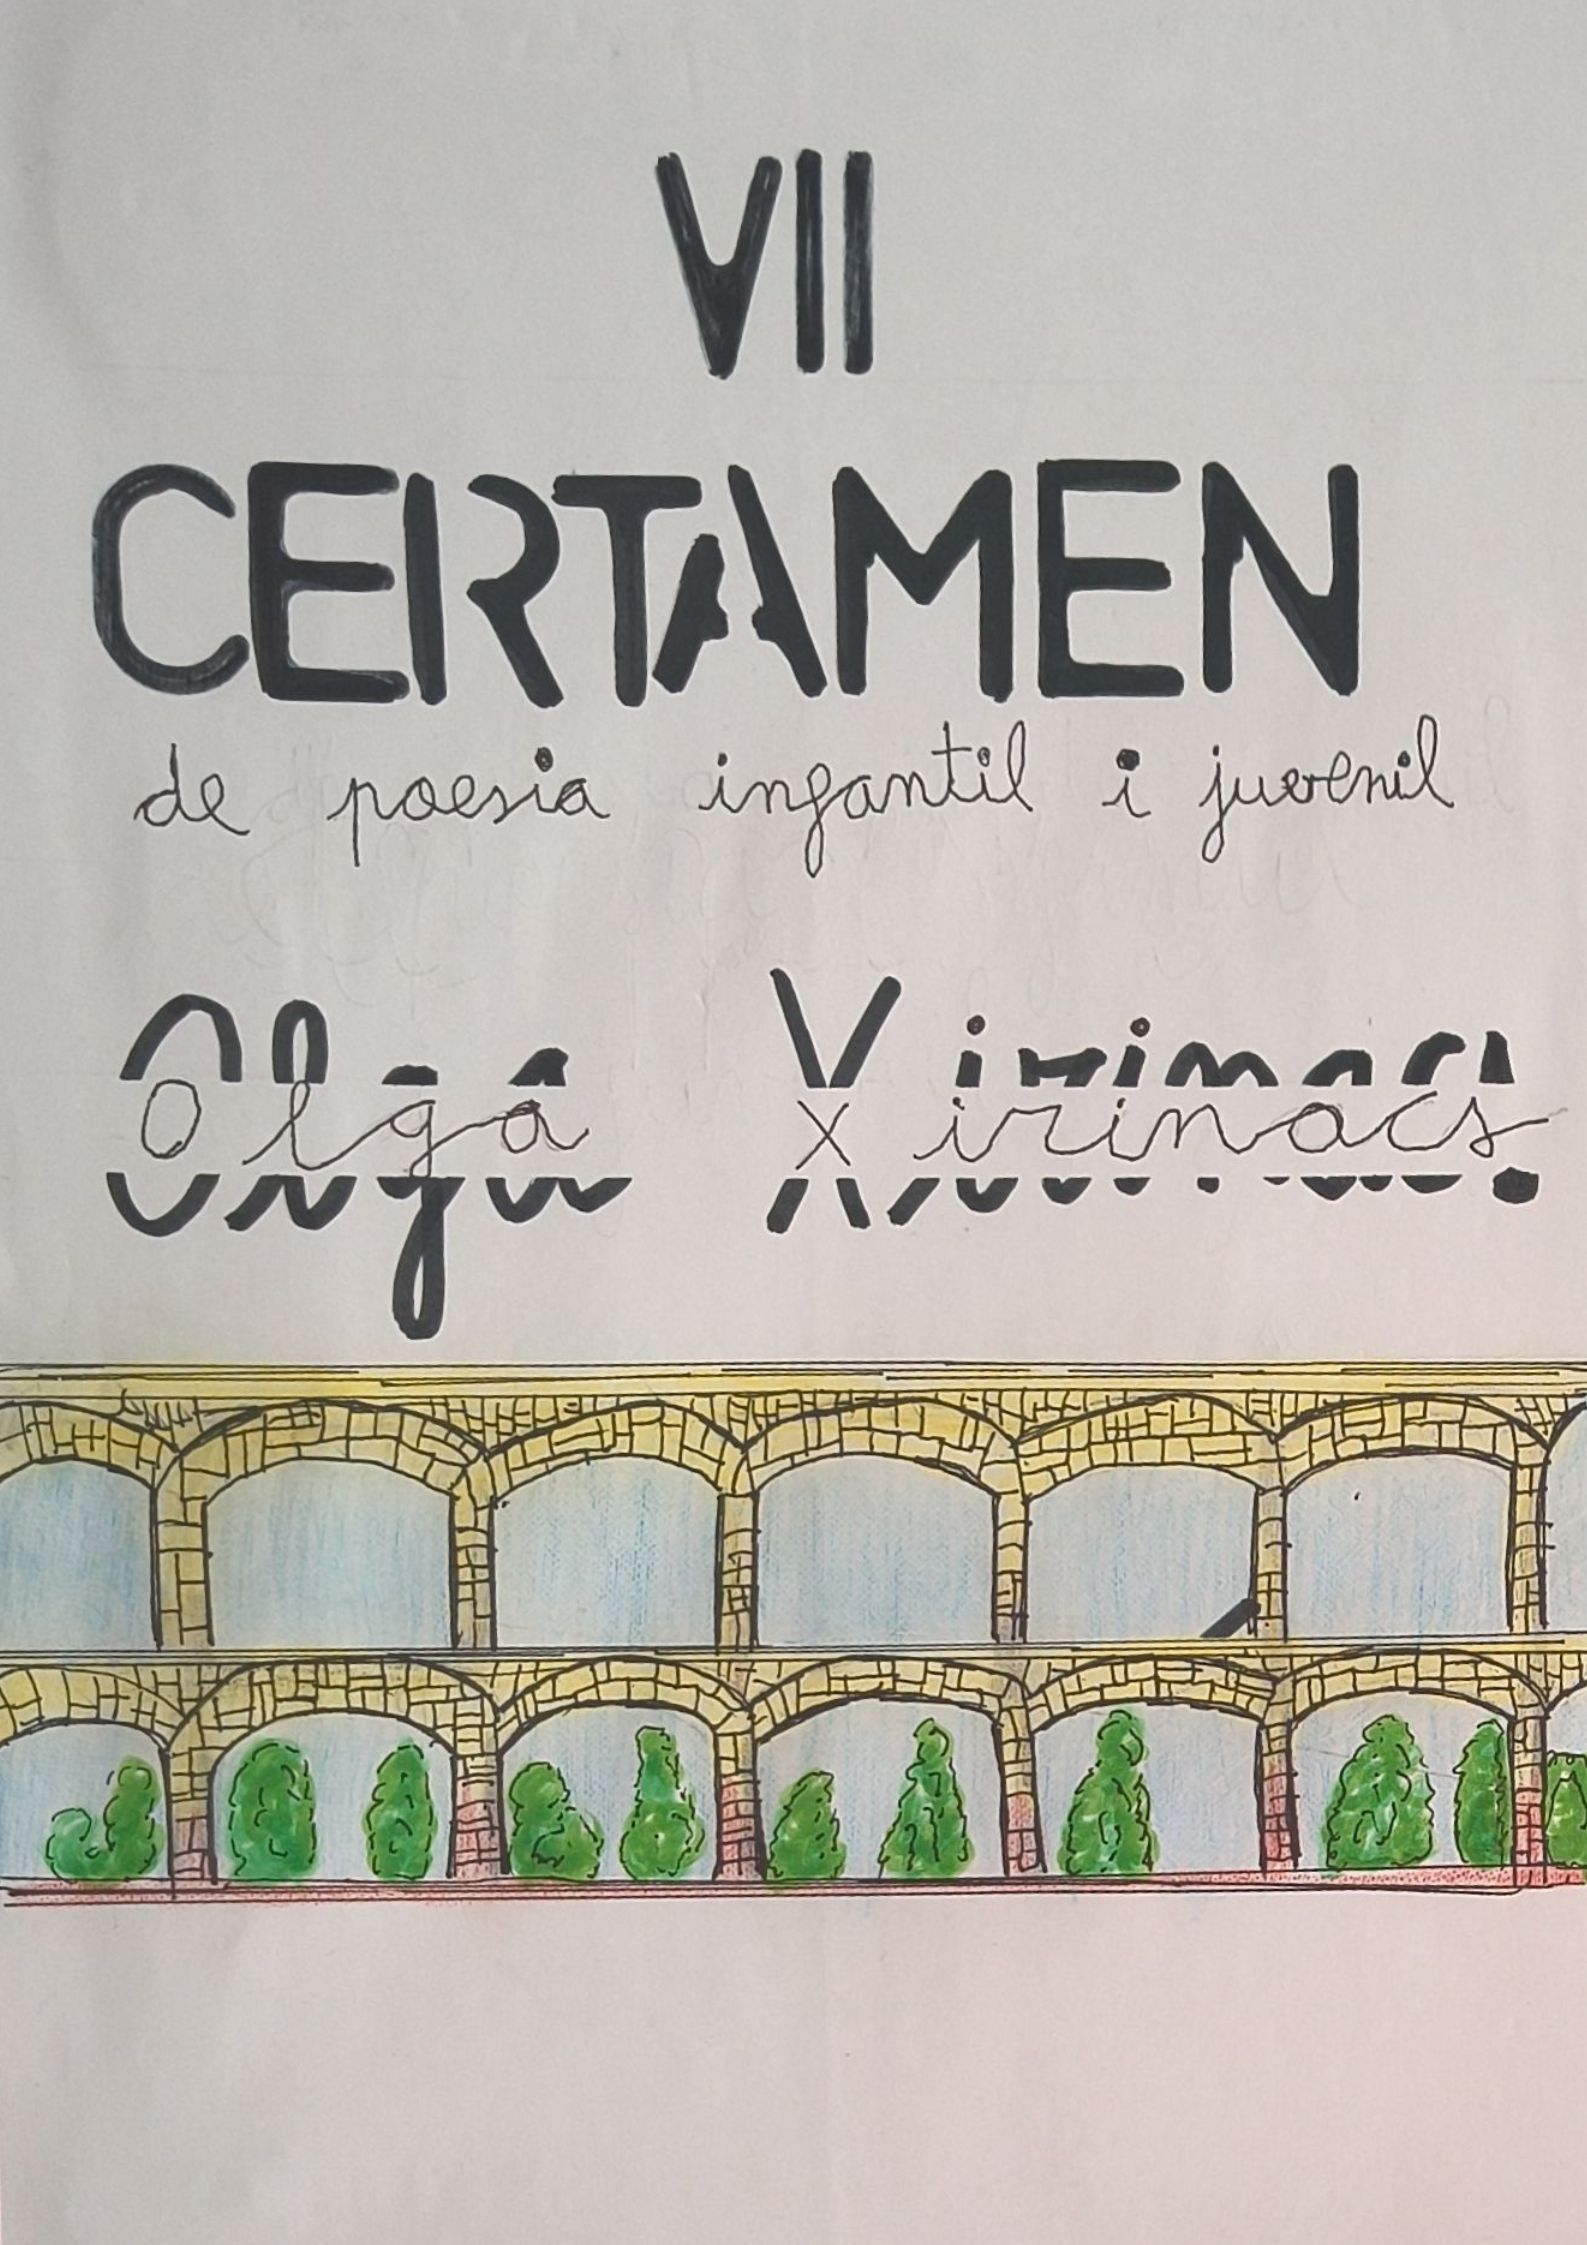 VII
CERTAMEN
de poesia infantil i juvenil
Olga Xirinacs